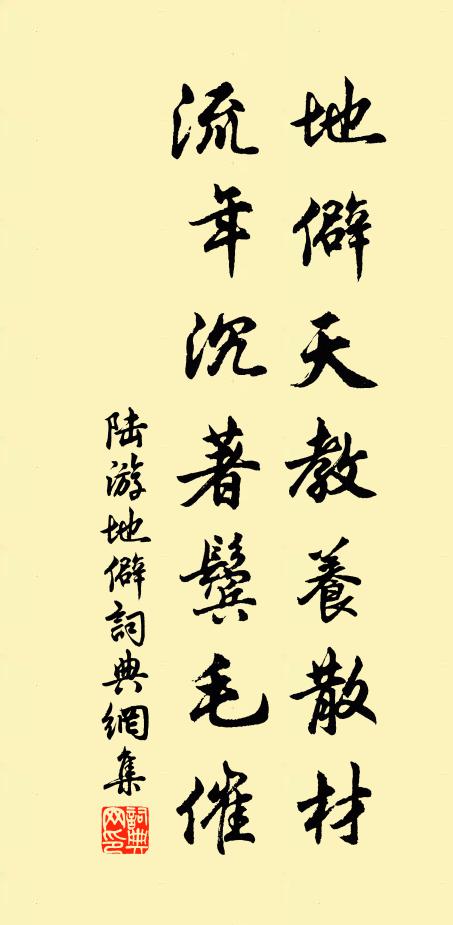 地僻天教養散材
流年沉著鬢毛催
陆游地僻詞典網集
詞典网印